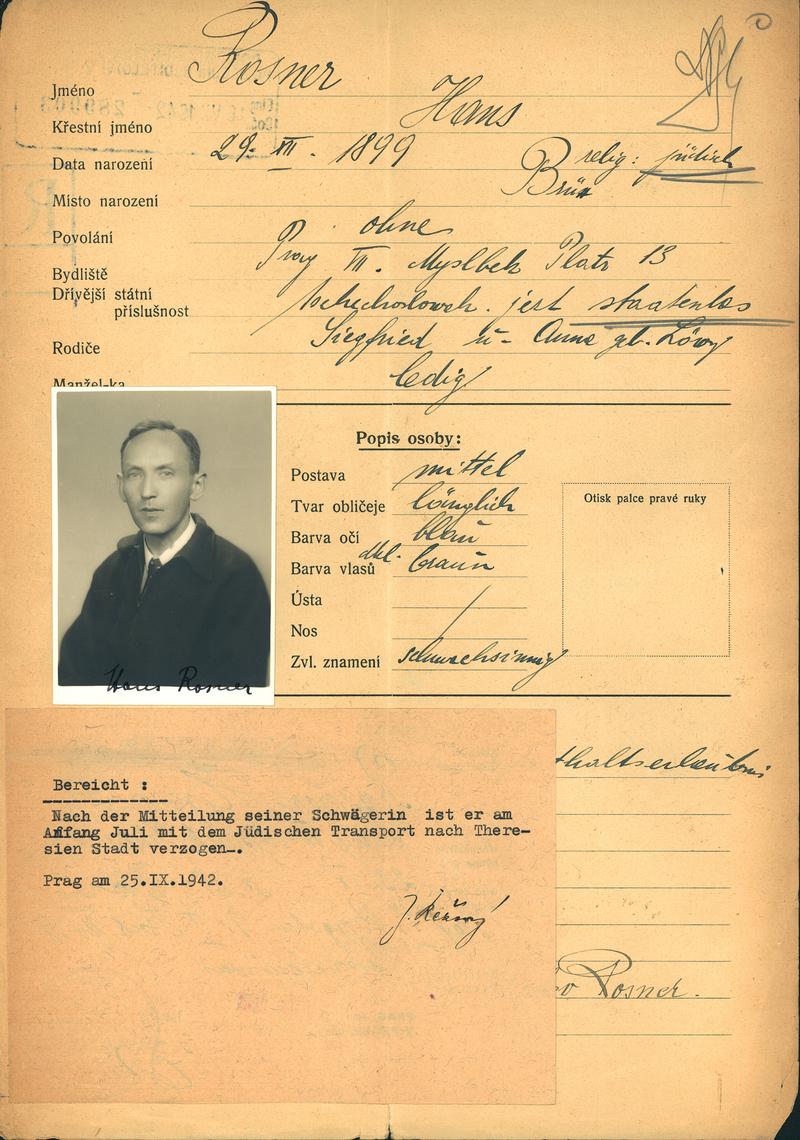 Jméno Rosner
Křestní jméno Hans
Data narození 29. VII. 1899 relig: jüdisch
Místo narození Brün
Povolání ohne
Bydliště Prag VII. Myslbek Platz 13
Dřívější státní
příslušnost tschechoslowak. jetzt staatenlos
Rodiče Siegfried u- Anna geb. Löwy
Manžel-ka ledig
Popis osoby:
Postava mittel
Tvar obličeje länglich
Barva očí blau
Barva vlasů dkl. braun
Ústa
Nos
Zvl. znamení schwachsinnig
Otisk palce pravé ruky
Hans Rosner
thaltserlaubnis
Bereicht :
Nach der Mitteilung seiner Schwägerin ist er am
Anfang Juli mit dem Jüdischen Transport nach There-
sien Stadt verzogen-.
Prag am 25.IX.1942.
Rosner.